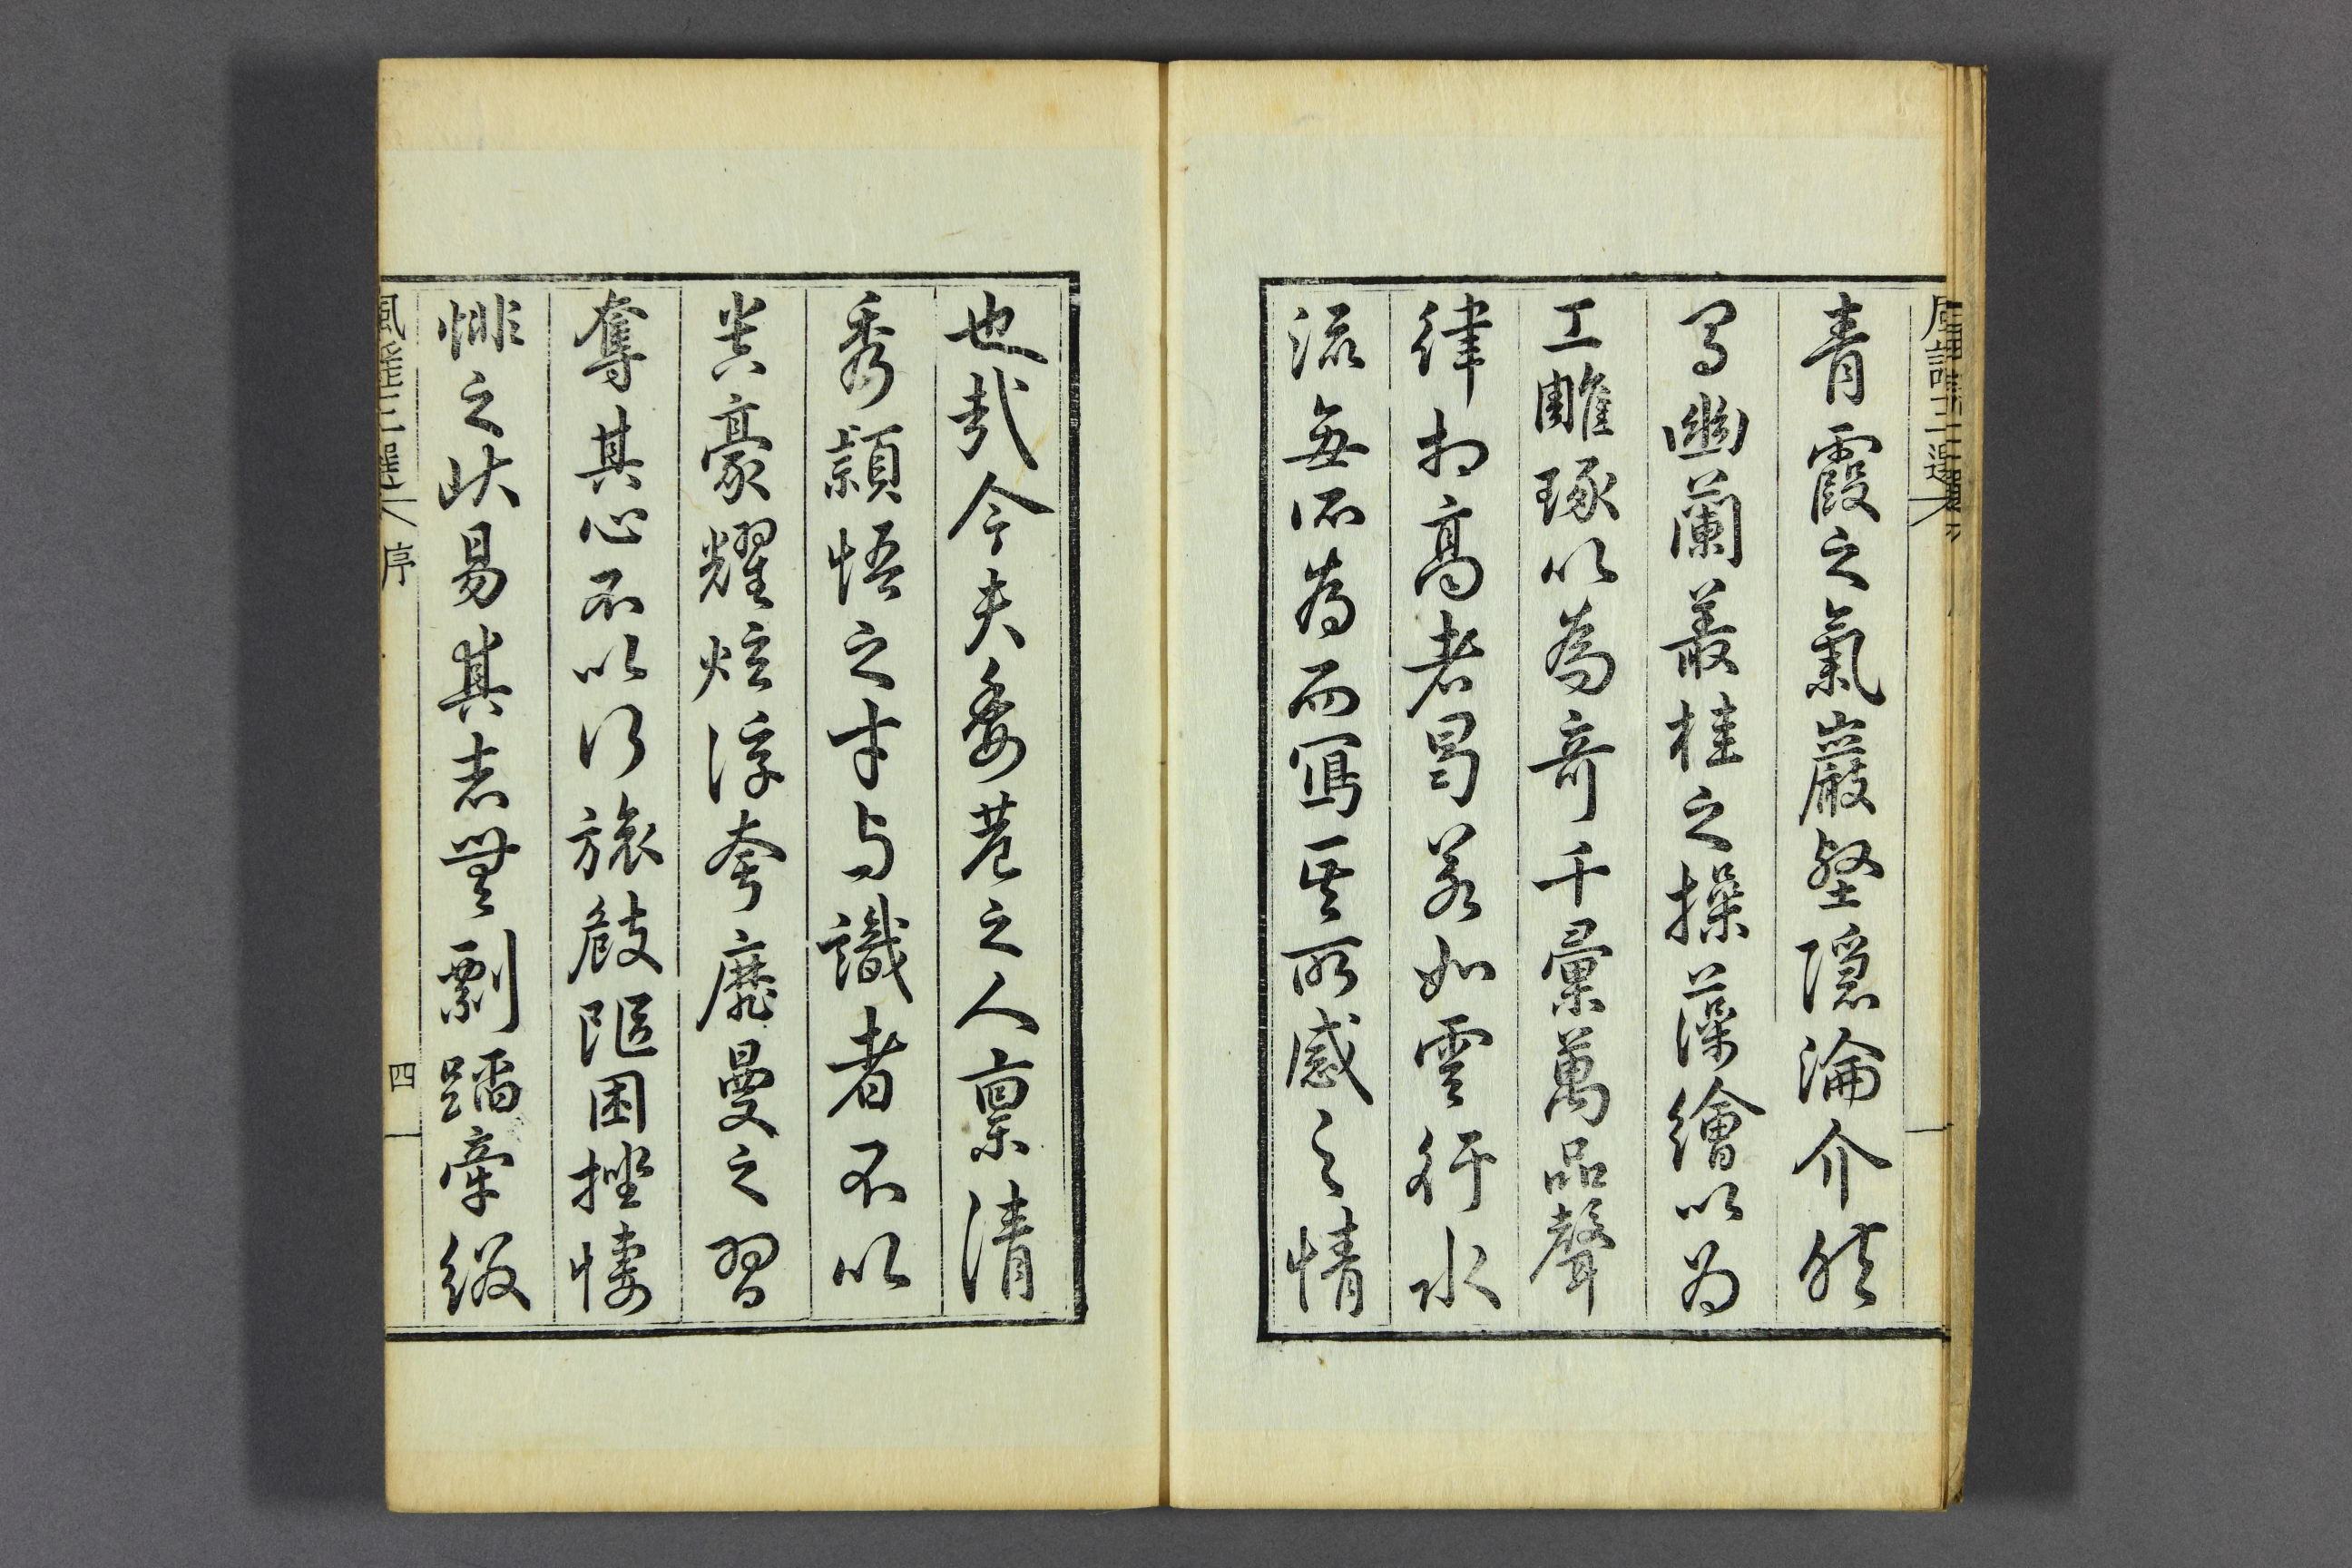 風謠三選
青霞之氣巖壑隱淪介然
幽蘭叢桂之操藻繪以为
工雕琢以為奇千彙萬品聲
律相高者曷若如雲行水
流無所為而寫其所感之情
也哉今夫委巷之人禀清
秀穎悟之才与識者不以
貴豪耀炫浮夸靡曼之習
奪其心不以行旅攲䧢困挫悽
悱之狀易其志無剽蹈牽綴
風謠三選 序 四